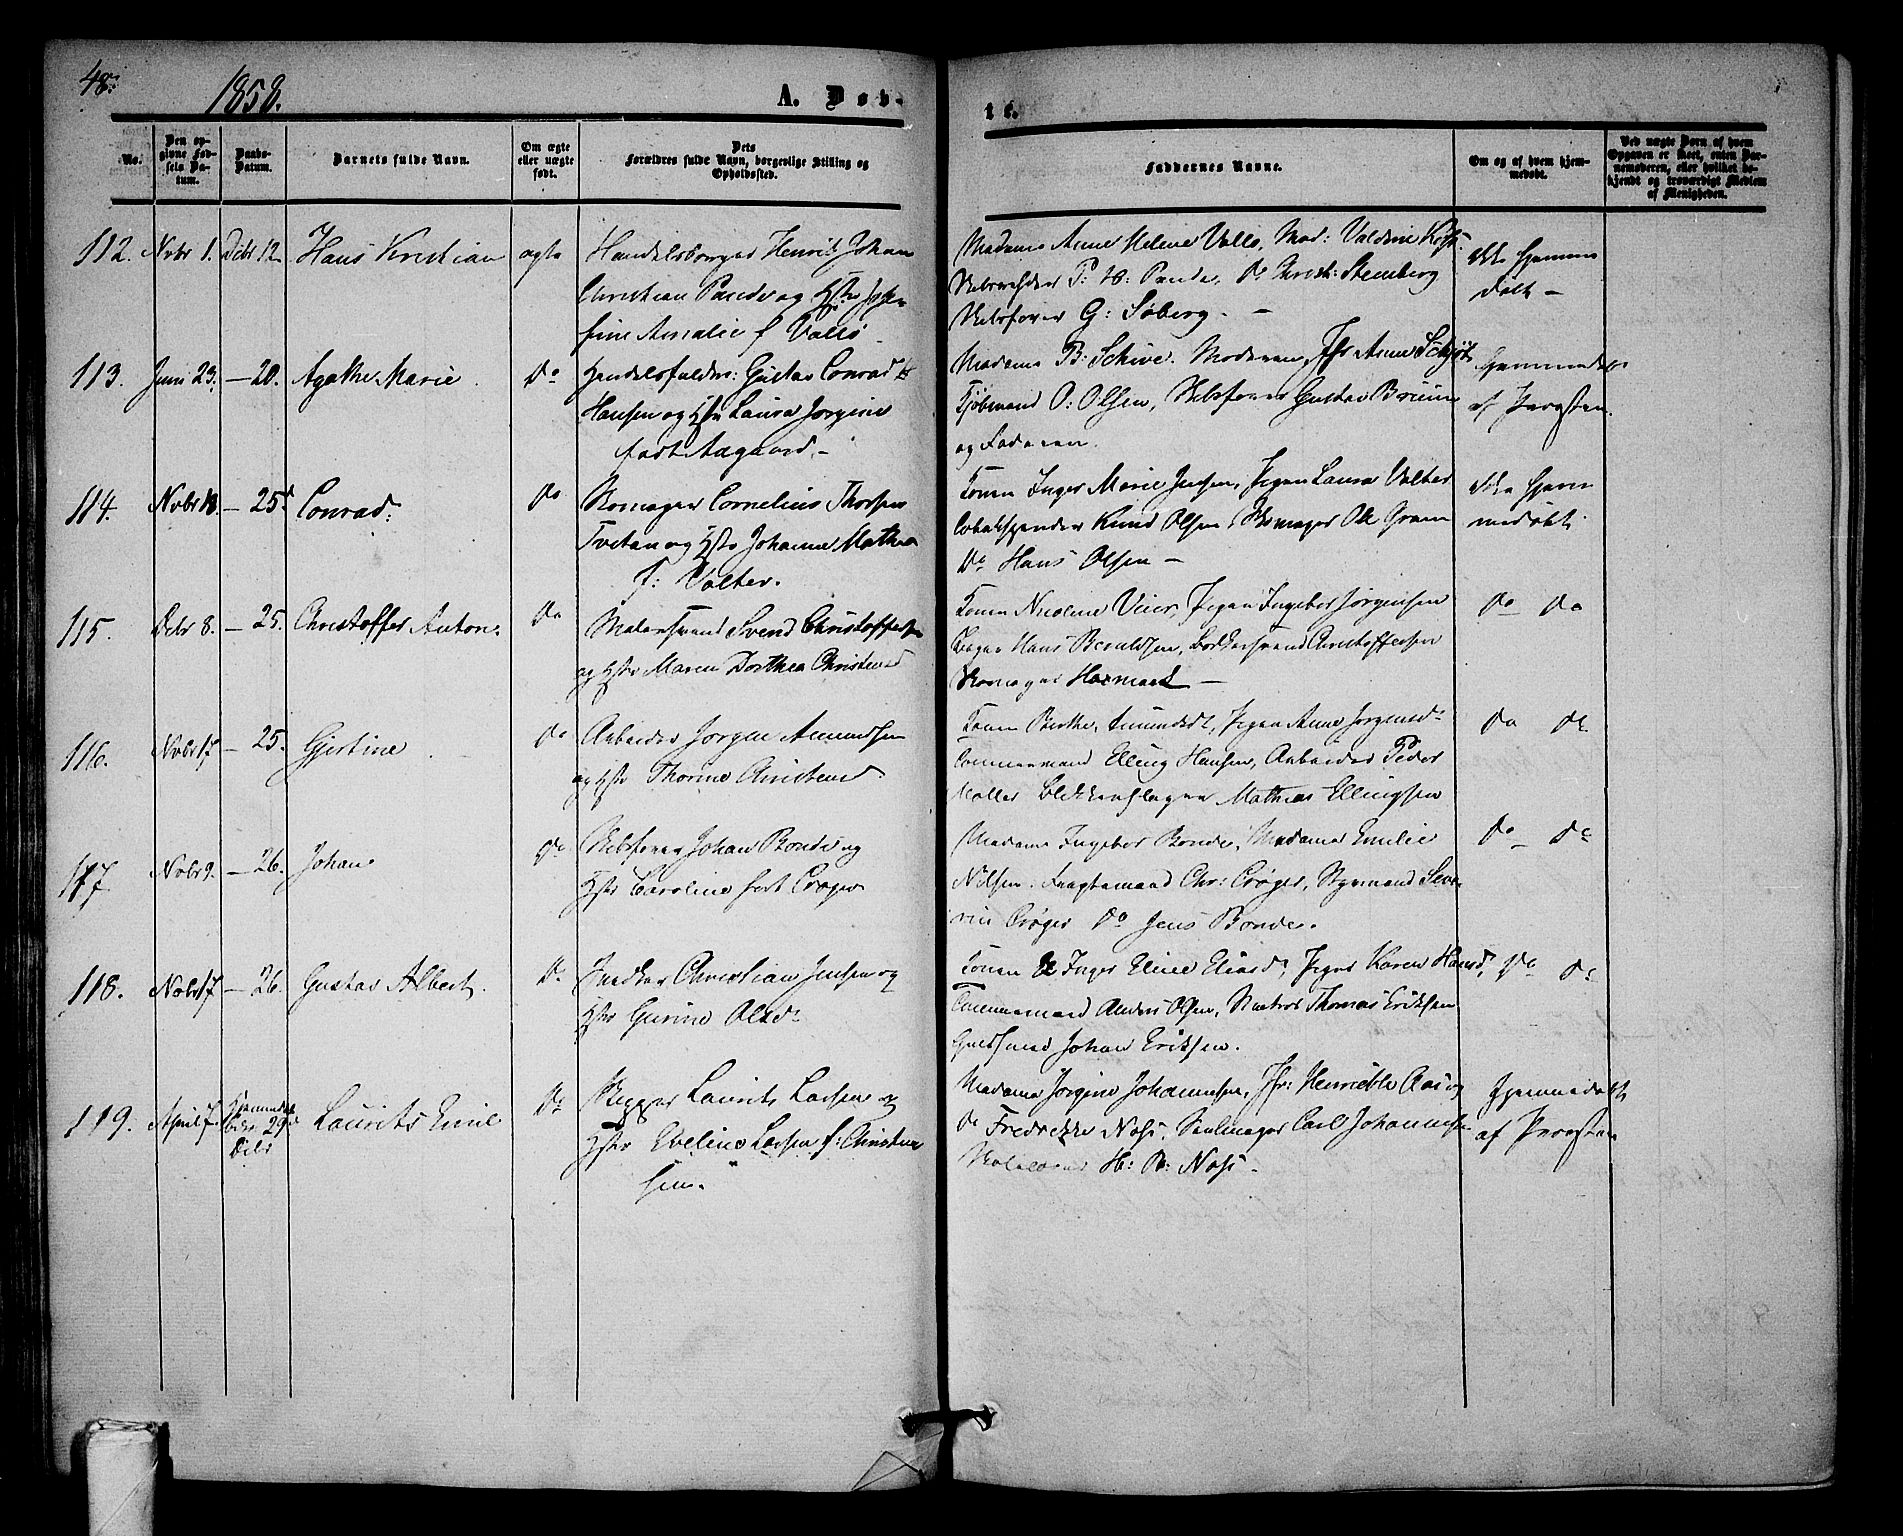 48.
1858.
A. Døb-
te.
No.
Den op-
givne Fød-
sels Da-
tum.
Daabs-
Datum.
Barnets fulde Navn.
Om ægte
eller uægte
født.
Dets
Forældres fulde Navn, borgerlige Stilling og
Opholdssted.
Faddernes Navne.
Om og af hvem hjem-
medøbt.
Ved uægte Børn af hvem
Opgaven er skeet, enten Bar-
nemoderen, eller hvilket be-
kjendt og troværdigt Medlem
af Menigheden.
112. Nvbr 1. Dcbr 12 Hans Kristian ægte
Handelsborger Henrik Johan
Christian Pande og Hstr Jose-
fine Amalie f Vallø
Madame Anne Helene Vallø, Mad: Valdine
P: H: Pande, Do Christ: Steenberg
Skibsfører G: Søberg. —
ikke hjemme
døbt —
113. Juni 23. — 20. Agathe Marie. Do
Handelsfuldm: Gustav Conrad
Hansen og Hstr Laura Jørgine
født Aagaard. —
Madame B: Schive. Moderen, Jfr Anne Schjøt
Kjøbmand O: Olsen, Skibsfører Gustav Bruun
og Faderen.
Hjemmedøbt
af Provsten.
114. Nvbr 18. — 25d Conrad. Do
Skomager Cornelius Thorsen
Tvetan og Hstr Johanne Mathea
f: Valter.
Konen Inger Marie Jensen, Pigen Laura Valter
Tobakspinder Knud Olsen, Skomager Ole Gram
Do Hans Olsen —
ikke hjem
medøbt
115. Dcbr 8. — 25. Christoffer Anton. Do
Matersvend Svend Christoffersen
og Hstr Maren Dorthea Christensd
Konen Nicoline Veier, Pigen Ingebor Jørgensen
Hans Berntsen, Bødkersvend Christoffersen
Skomager
Do Do
116. Nvbr 17 — 25. Gjertine. Do
Arbeider Jørgen Amundsen
og Hstr Thorine Christensd.
Konen Berthe Amundsdt, Pigen Anne Jørgensd
Tømmermand Elling Hansen, Arbeider Peder
Møller Blikkenslager Mathias Ellingsen
Do Do
117 Nvbr 9. — 26. Johan Do
Skibsfører Johan Bonde og
Hstr Caroline født Crøger
Madame Ingebor Bonde, Madame Emilie
Nilsen. Fragtemand Chr: Crøger, Styrmand Seve-
rin Crøger Do Jens Bonde.
Do — Do
118. Nvbr 17 — 26. Gustav Albert. Do
Snedker Christian Jensen og
Hstr Gurine Olsd
Konen Inger Eline Eliasd, Pigen Karen Hansd,
Tømmermand Anders Olsen, Matros Thomas Eriksen
Guldsmed Johan Eriksen.
Do Do
119. April 7. Hjemmedøbt
29
Laurits Emil Do
Skipper Laurits Larsen og
Hstr Eveline Larsen f: Christen
sen.
Madame Jørgine Johannesen, Jfr: Henriette
Do Fredrikke Noss, Seilmager Carl Johannesen
H: B: Noss.
hjemmedøbt
af Provsten